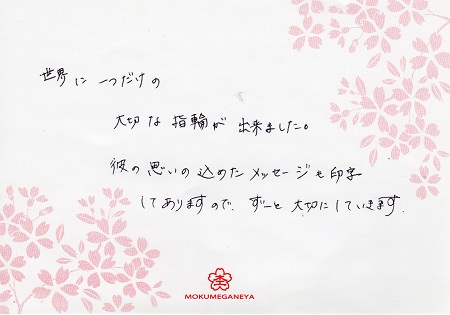 世界に一つだけの
大切な指輪が出来ました。
彼の思いの込めたメッセージも印字
してありますので、ずーと大切にしていきます。
MOKUMEGANEYA